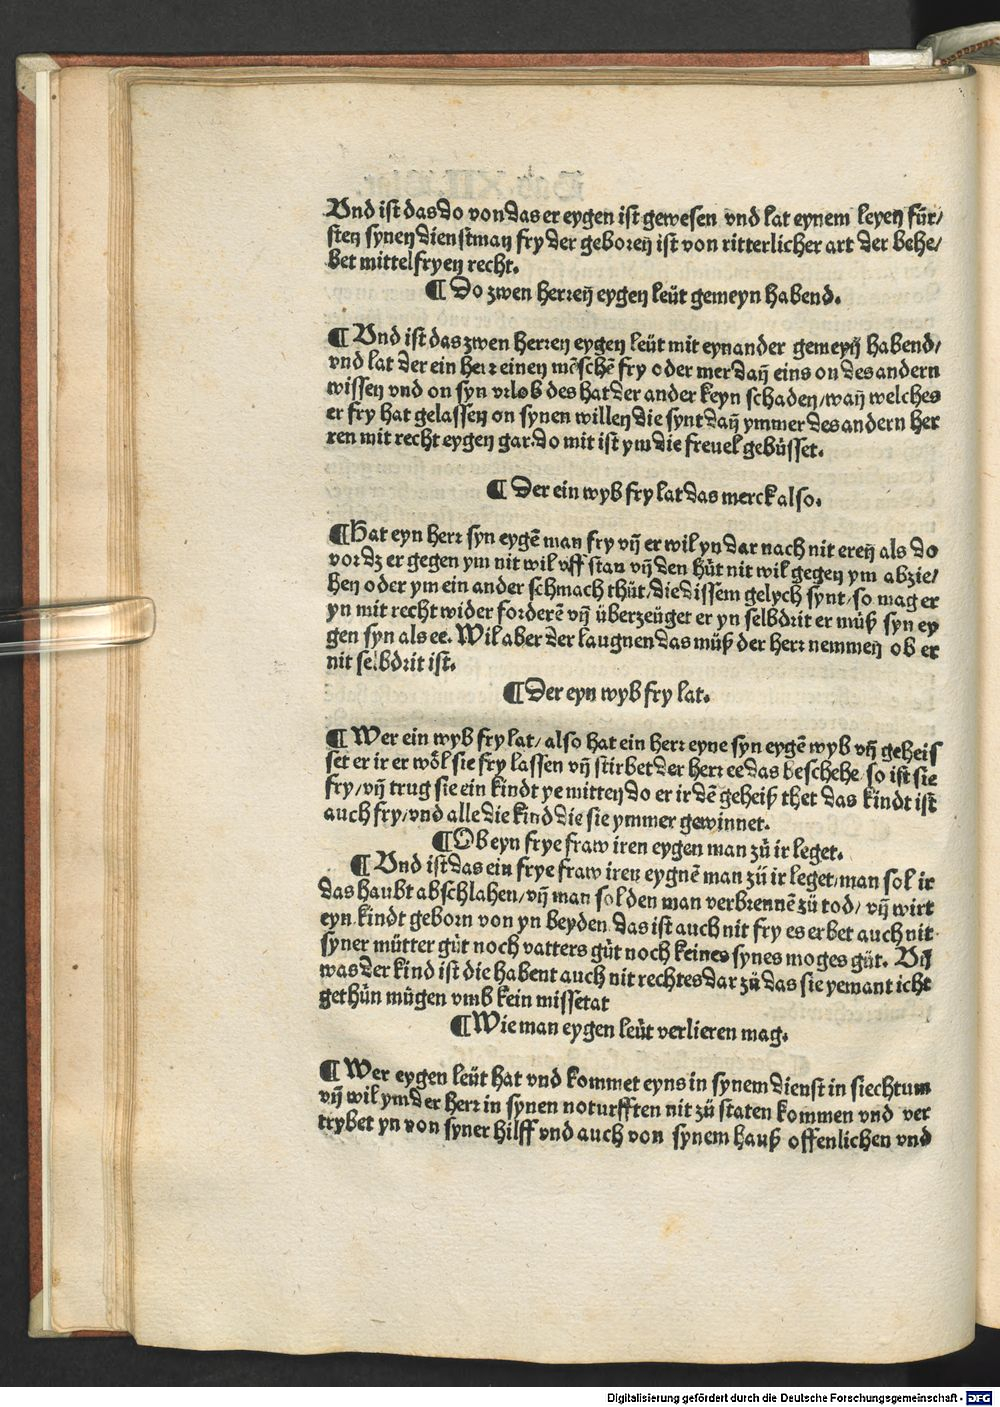 Vnd ist das do von das er eygen ist gewesen vnd lat eynem leyen für/
sten synen dienstman fry der geboren ist von ritterlicher art der behe/
bet mittelfryen recht.
¶ Do zwen herren eygen leüt gemeyn habend.
¶ Vnd ist das zwen herren eygen leüt mit eynander gemeyn̄ habend/
vnd lat der ein herr einen mēschē fry oder mer dan̄ eins on des andern
wissen vnd on syn vrlob des hat der ander keyn schaden/wan̄ welches
er fry hat gelassen on synen willen die synt dan̄ ymmer des andern her
ren mit recht eygen gar.do mit ist ym die freuel gebüsset.
¶ Der ein wyb fry lat das merck also.
¶ Hat eyn herr syn eygē man fry vn̄ er wil yn dar nach nit eren̄ als do
vor dz er gegen ym nit wil vff stan vn̄ den hůt nit wil gegen ym abzie/
hen oder ym ein ander schmach thůt/die dissem gelych synt/so mag er
yn mit recht wider forderē vn̄ überzeüget er yn selbdrit er můß syn ey
gen syn als ee. Wil aber der laugnen das můß der herr nemmen ob er
nit selbdrit ist.
¶ Der eyn wyb fry lat.
¶ Wer ein wyb fry lat/also hat ein herr eyne syn eygē wyb vn̄ geheis
set er ir er wöl sie fry lassen vn̄ stirbet der herr ee das beschehe/so ist sie
fry/vn̄ trug sie ein kindt ye mitten do er ir dē geheiß thet das kindt ist
auch fry/vnd alle die kind die sie ymmer gewinnet.
¶ Ob eyn frye fraw iren eygen man zů ir leget.
¶ Vnd ist das ein frye fraw iren eygnē man zů ir leget/man sol ir
das haubt abschlahen/vn̄ man sol den man verbrennē zů tod/vn̄ wirt
eyn kindt geborn von yn beyden das ist auch nit fry es erbet auch nit
syner můtter gůt noch vatters gůt noch keines synes moges gůt. Vn̄
was der kind ist die habent auch nit rechtes dar zů das sie yemant icht
gethůn mügen vmb kein missetat
¶ Wie man eygen leüt verlieren mag.
¶ Wer eygen leüt hat vnd kommet eyns in synem dienst in siechtum
vn̄ wil ym der herr in synen noturfften nit zů staten kommen vnd ver
trybet yn von syner hilff vnd auch von synem hauß offenlichen vnd
Digitalisierung gefördert durch die Deutsche Forschungsgemeinschaft - DFG